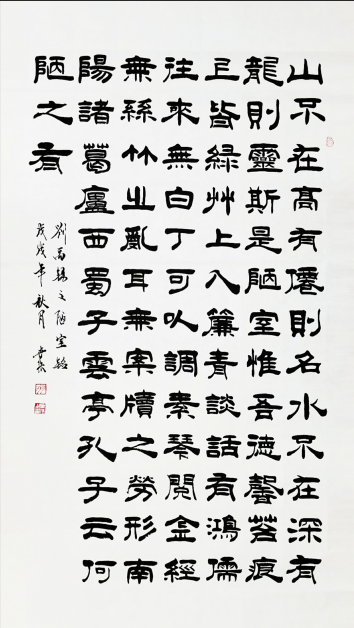 山不在高有僊則名水不在深有
龍則靈斯是陋室惟吾德馨苔痕
上皆綠艸上入簾青談話有鴻儒
往來無白丁可以調素琴閱金經
無絲竹之亂耳無案牘之勞形南
陽諸葛廬西蜀子雲亭孔子云何
陋之有
劉禹錫之陋室銘
戊戌年秋月